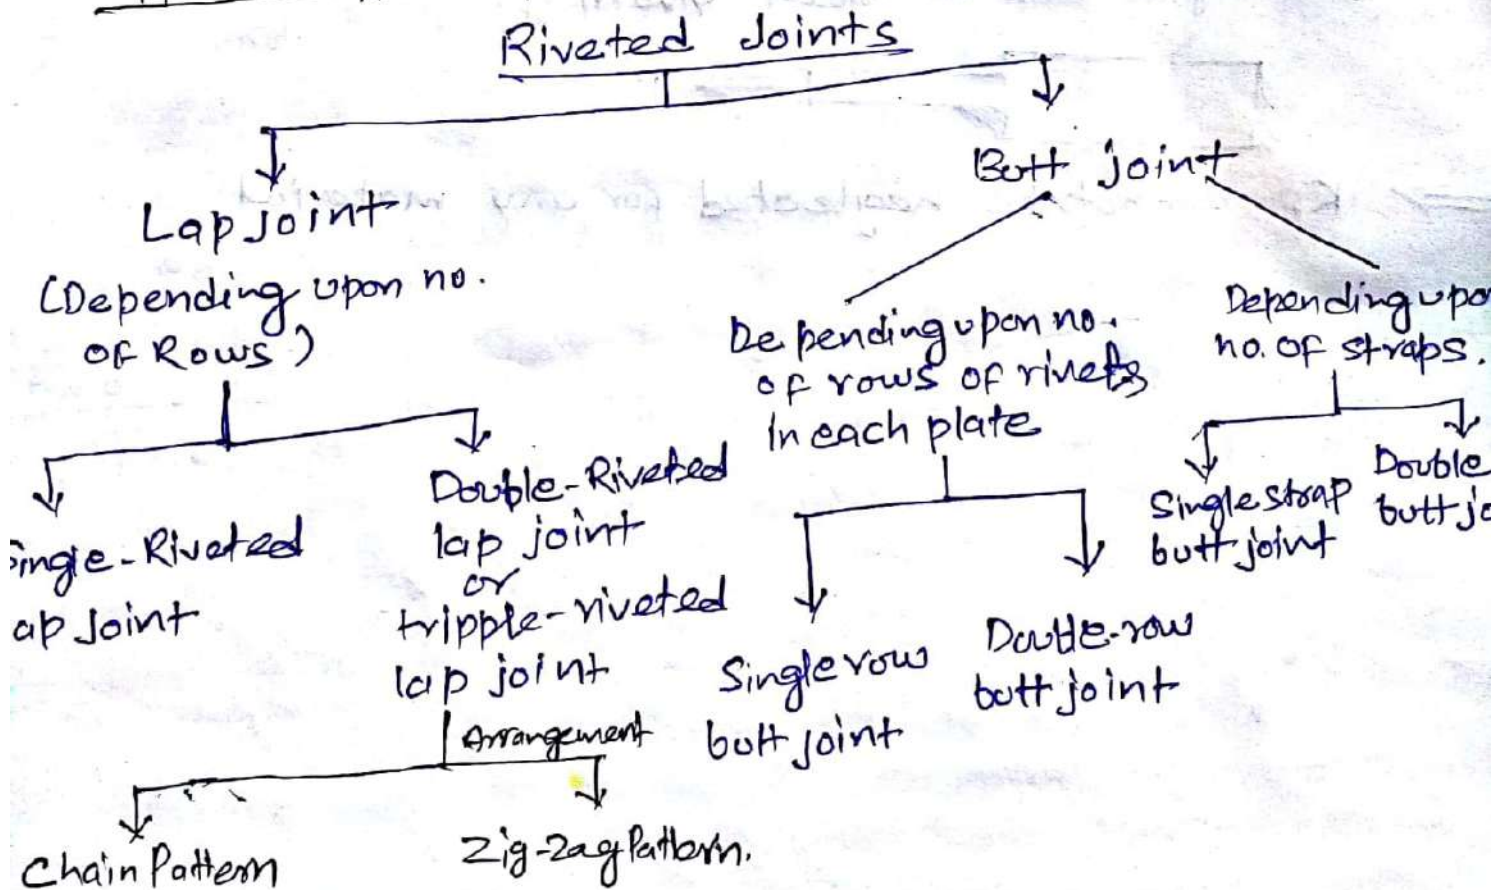 Riveted Joints
Lap joint
(Depending upon no.
of Rows)
Single-Riveted
ap Joint
Double-Riveted
lap joint
or
tripple-riveted
lap joint
Arrangement
Chain Pattern
Zig-Zag Pattern.
Butt joint
Depending upon no.
of rows of rivets
in each plate
Single row
butt joint
Double-row
butt joint
Depending upo
no. of straps.
Single strap
butt joint
Double
butt jo